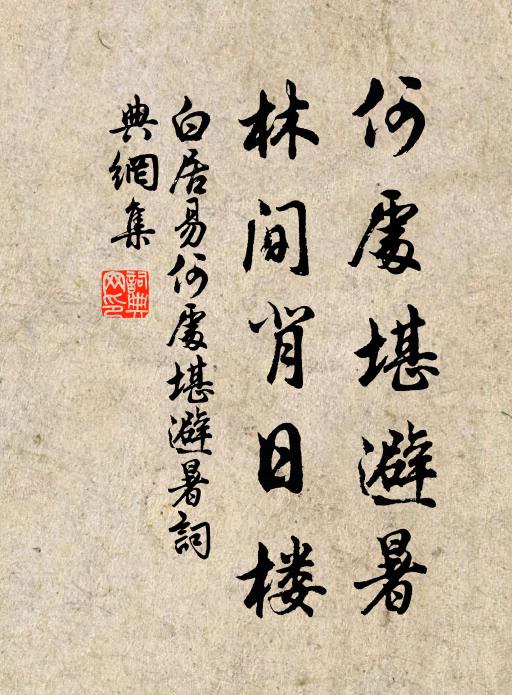 何處堪避暑
林間背日楼
白居易何處堪避暑詞
典網集
詞典
网印